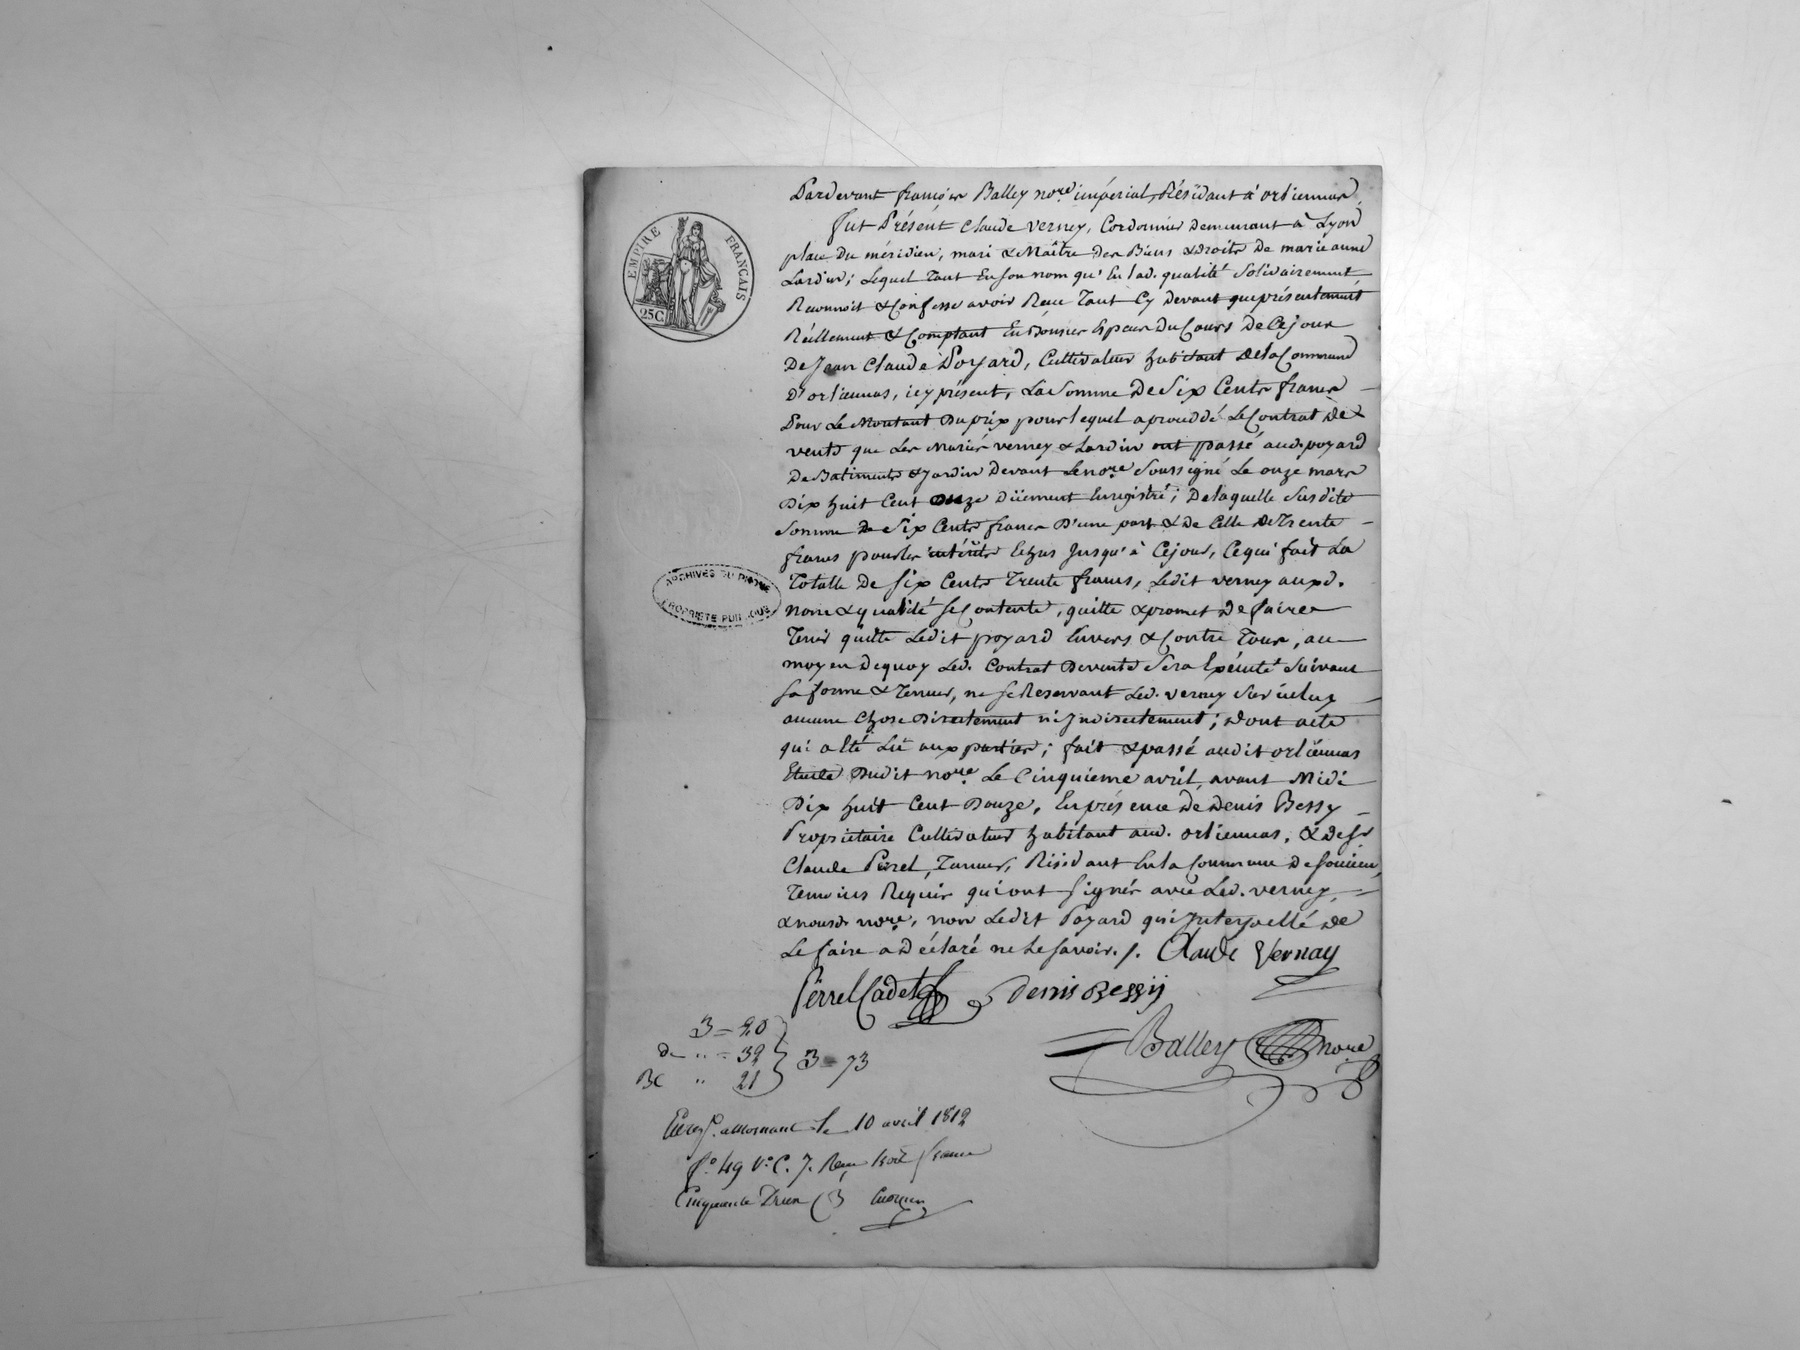 EMPIRE FRANÇAIS
25C
Pardevant françois Balley nore. impérial, Résidant à orliennas,
fut Présent Claude verney, Cordonnier demeurant à Lyon
place du méridien, mari & Maître des Biens & droits de marie anne
Lardin; Lequel tant En son nom qu'En lad. qualité Solidairement
Reconnoit & Confesse avoir Reçu tant Cy devant que présentement
Réellement & Comptant En Bonnes Espèces du Cours de Cejour
De Jean Claude Poyard, Cultivateur habitant de la Commune
d'orliennas, icy présent, La Somme De Six Cents francs
Pour Le Montant Du prix pour lequel a procédé Le Contrat de
vente que Les Mariés verney & Lardin ont passé aud. poyard
De Batiments & Jardin Devant Le nore. Soussigné Le onze mars
Dix huit Cent onze Düement Enregistré; De laquelle Susdite
Somme de Six Cents francs D'une part & de Celle De Trente
francs pour les intérêts Echus Jusqu'à Cejour, Ce qui fait La
Totalle De Six Cents Trente francs, Ledit verney auxd.
nom & qualité Se Contente, quitte & promet de faire
Tenir quitte Ledit poyard Envers & Contre Tous, au
moyen Dequoy Led. Contrat De vente Sera Exécuté Suivant
Sa forme & Teneur, ne Se Reservant Led. verney Sur icelux
aucune Chose Directement ni Indirectement; Dont acte
qui a Eté Lû aux parties; fait & passé audit orliennas
Etude Dudit nore. Le Cinquieme avril, avant Midi
Dix huit Cent Douze, En présence de Denis Bessy
Propriétaire Cultivateur habitant aud. orliennas, & de Sr.
Claude Perrel, Tanneur, Résidant En la Commune De Soucieu,
Temoins Requis qui ont Signés avec Led. verney,
& nousd. nore., non Ledit Poyard qui Interpellé de
Le faire a Déclaré ne Le Savoir. /. Claude Vernay
Perrel Cadet Denis Bessy
ARCHIVES DU RHONE
PROPRIETE PUBLIQUE
3 = 20
de " = 32
" 21
3 = 73
Balley nore
Enregé. à Mornant le 10 avril 1812
fo. 49 Vo. C. 7. Reçu trois francs
Cinquante Deux C